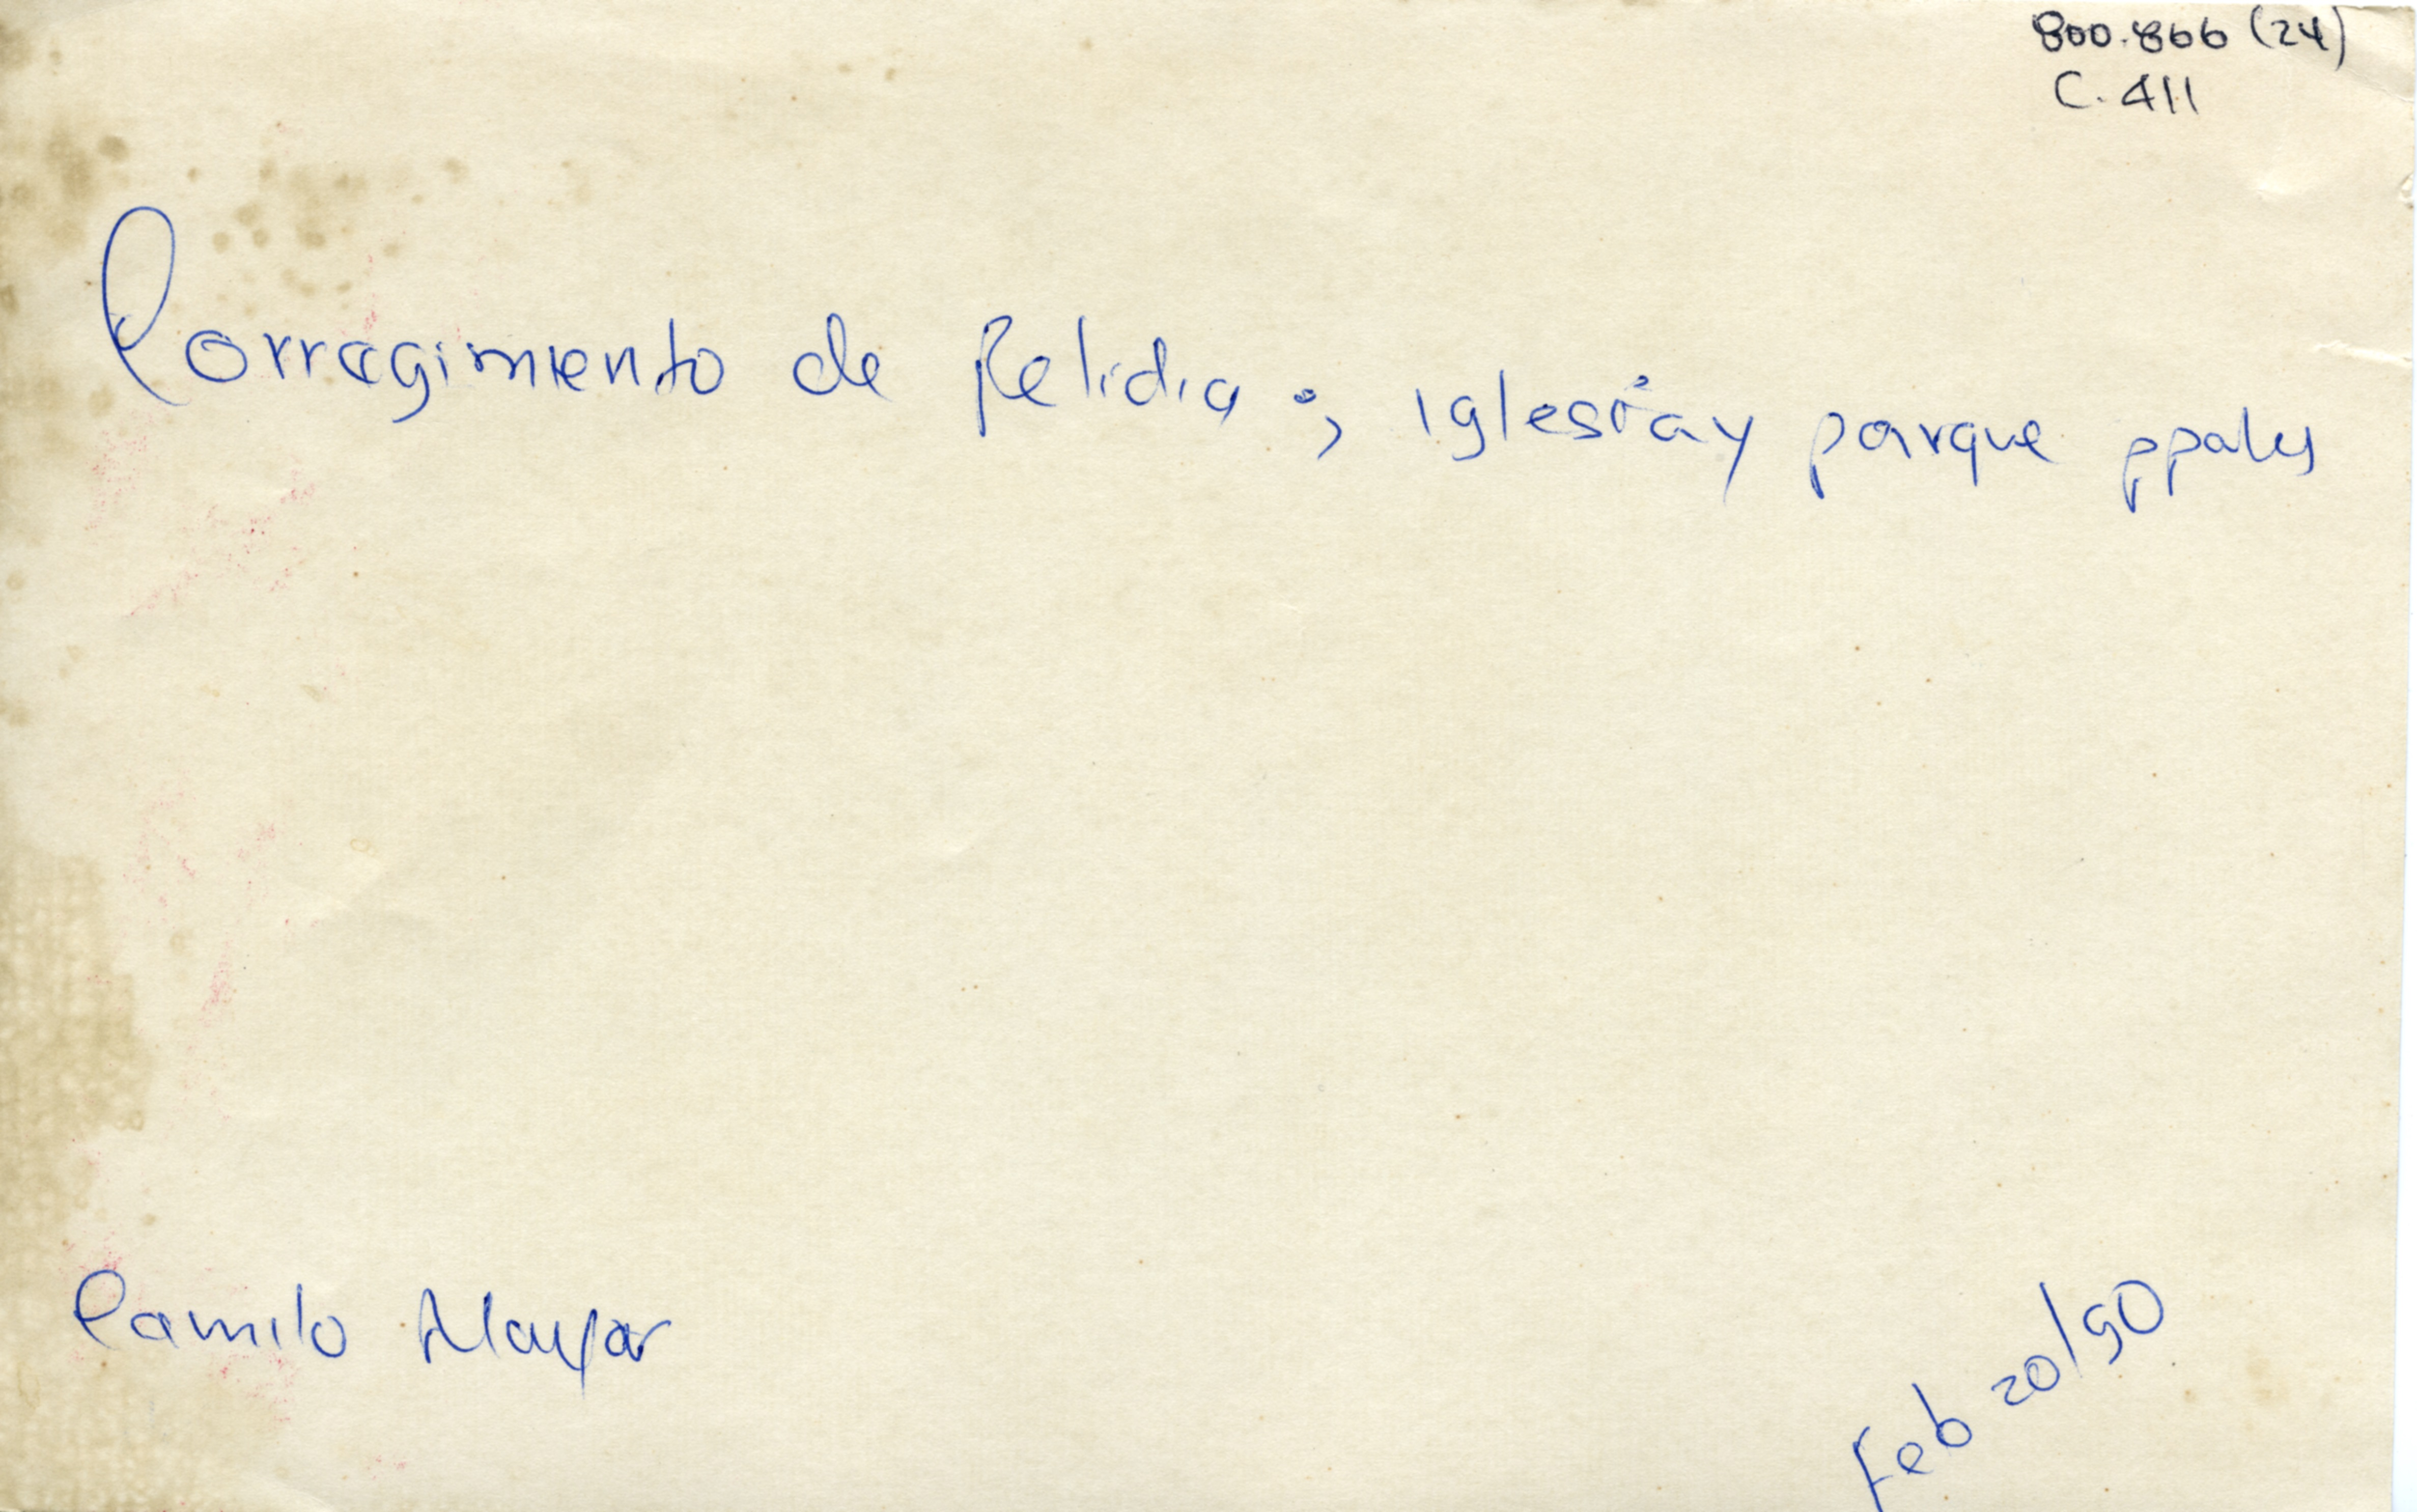 800.866 (24)
C. 411
Corregimiento de Felidia ; Iglesia y parque ppales
Camilo Mayor
Feb 20/90